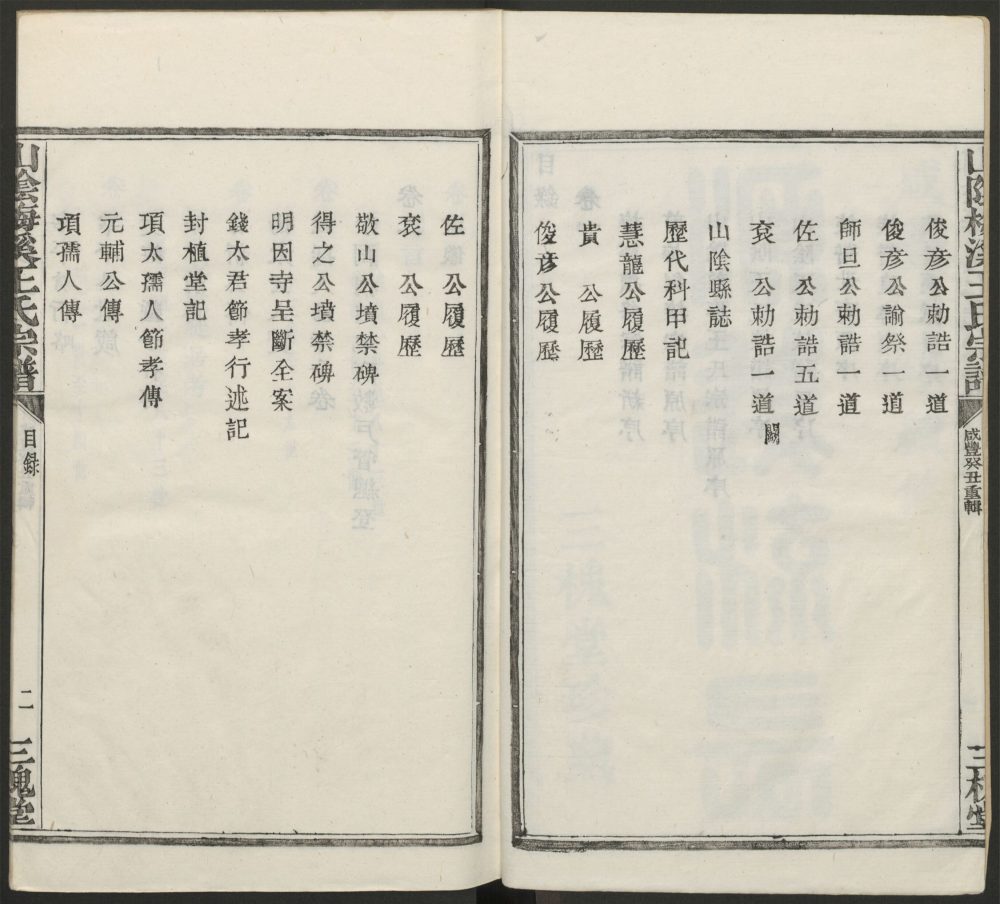 山陰梅溪王氏宗譜
咸豐癸丑重輯
三槐堂
俊彥公勅誥一道
俊彥公諭祭一道
師旦公勅誥一道
佐 公勅誥五道
袞 公勅誥一道 闕
山陰縣誌
歷代科甲記
慧龍公履歷
貴 公履歷
俊彥公履歷
佐 公履歷
袞 公履歷
敬山公墳禁碑
得之公墳禁碑
明因寺呈斷全案
錢太君節孝行述記
封植堂記
項太孺人節孝傳
元輔公傳
項孺人傳
山陰梅溪王氏宗譜
目錄
二
三槐堂